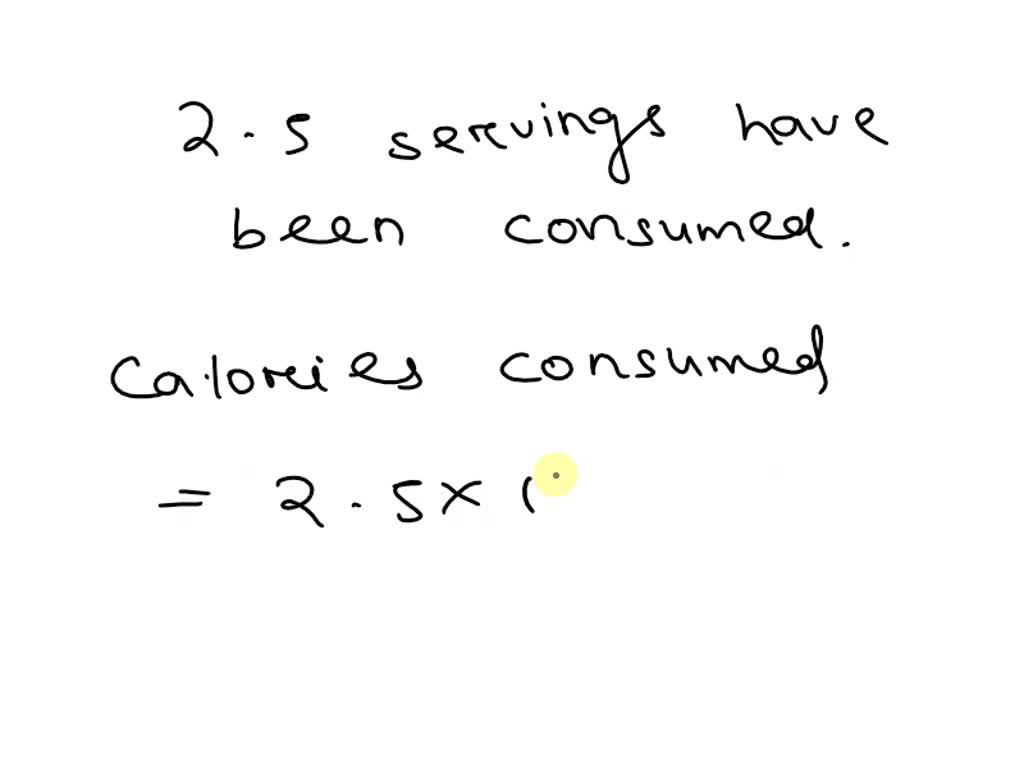 2.5 servings have
been consumed.
Calories consumed
= 2.5 × (